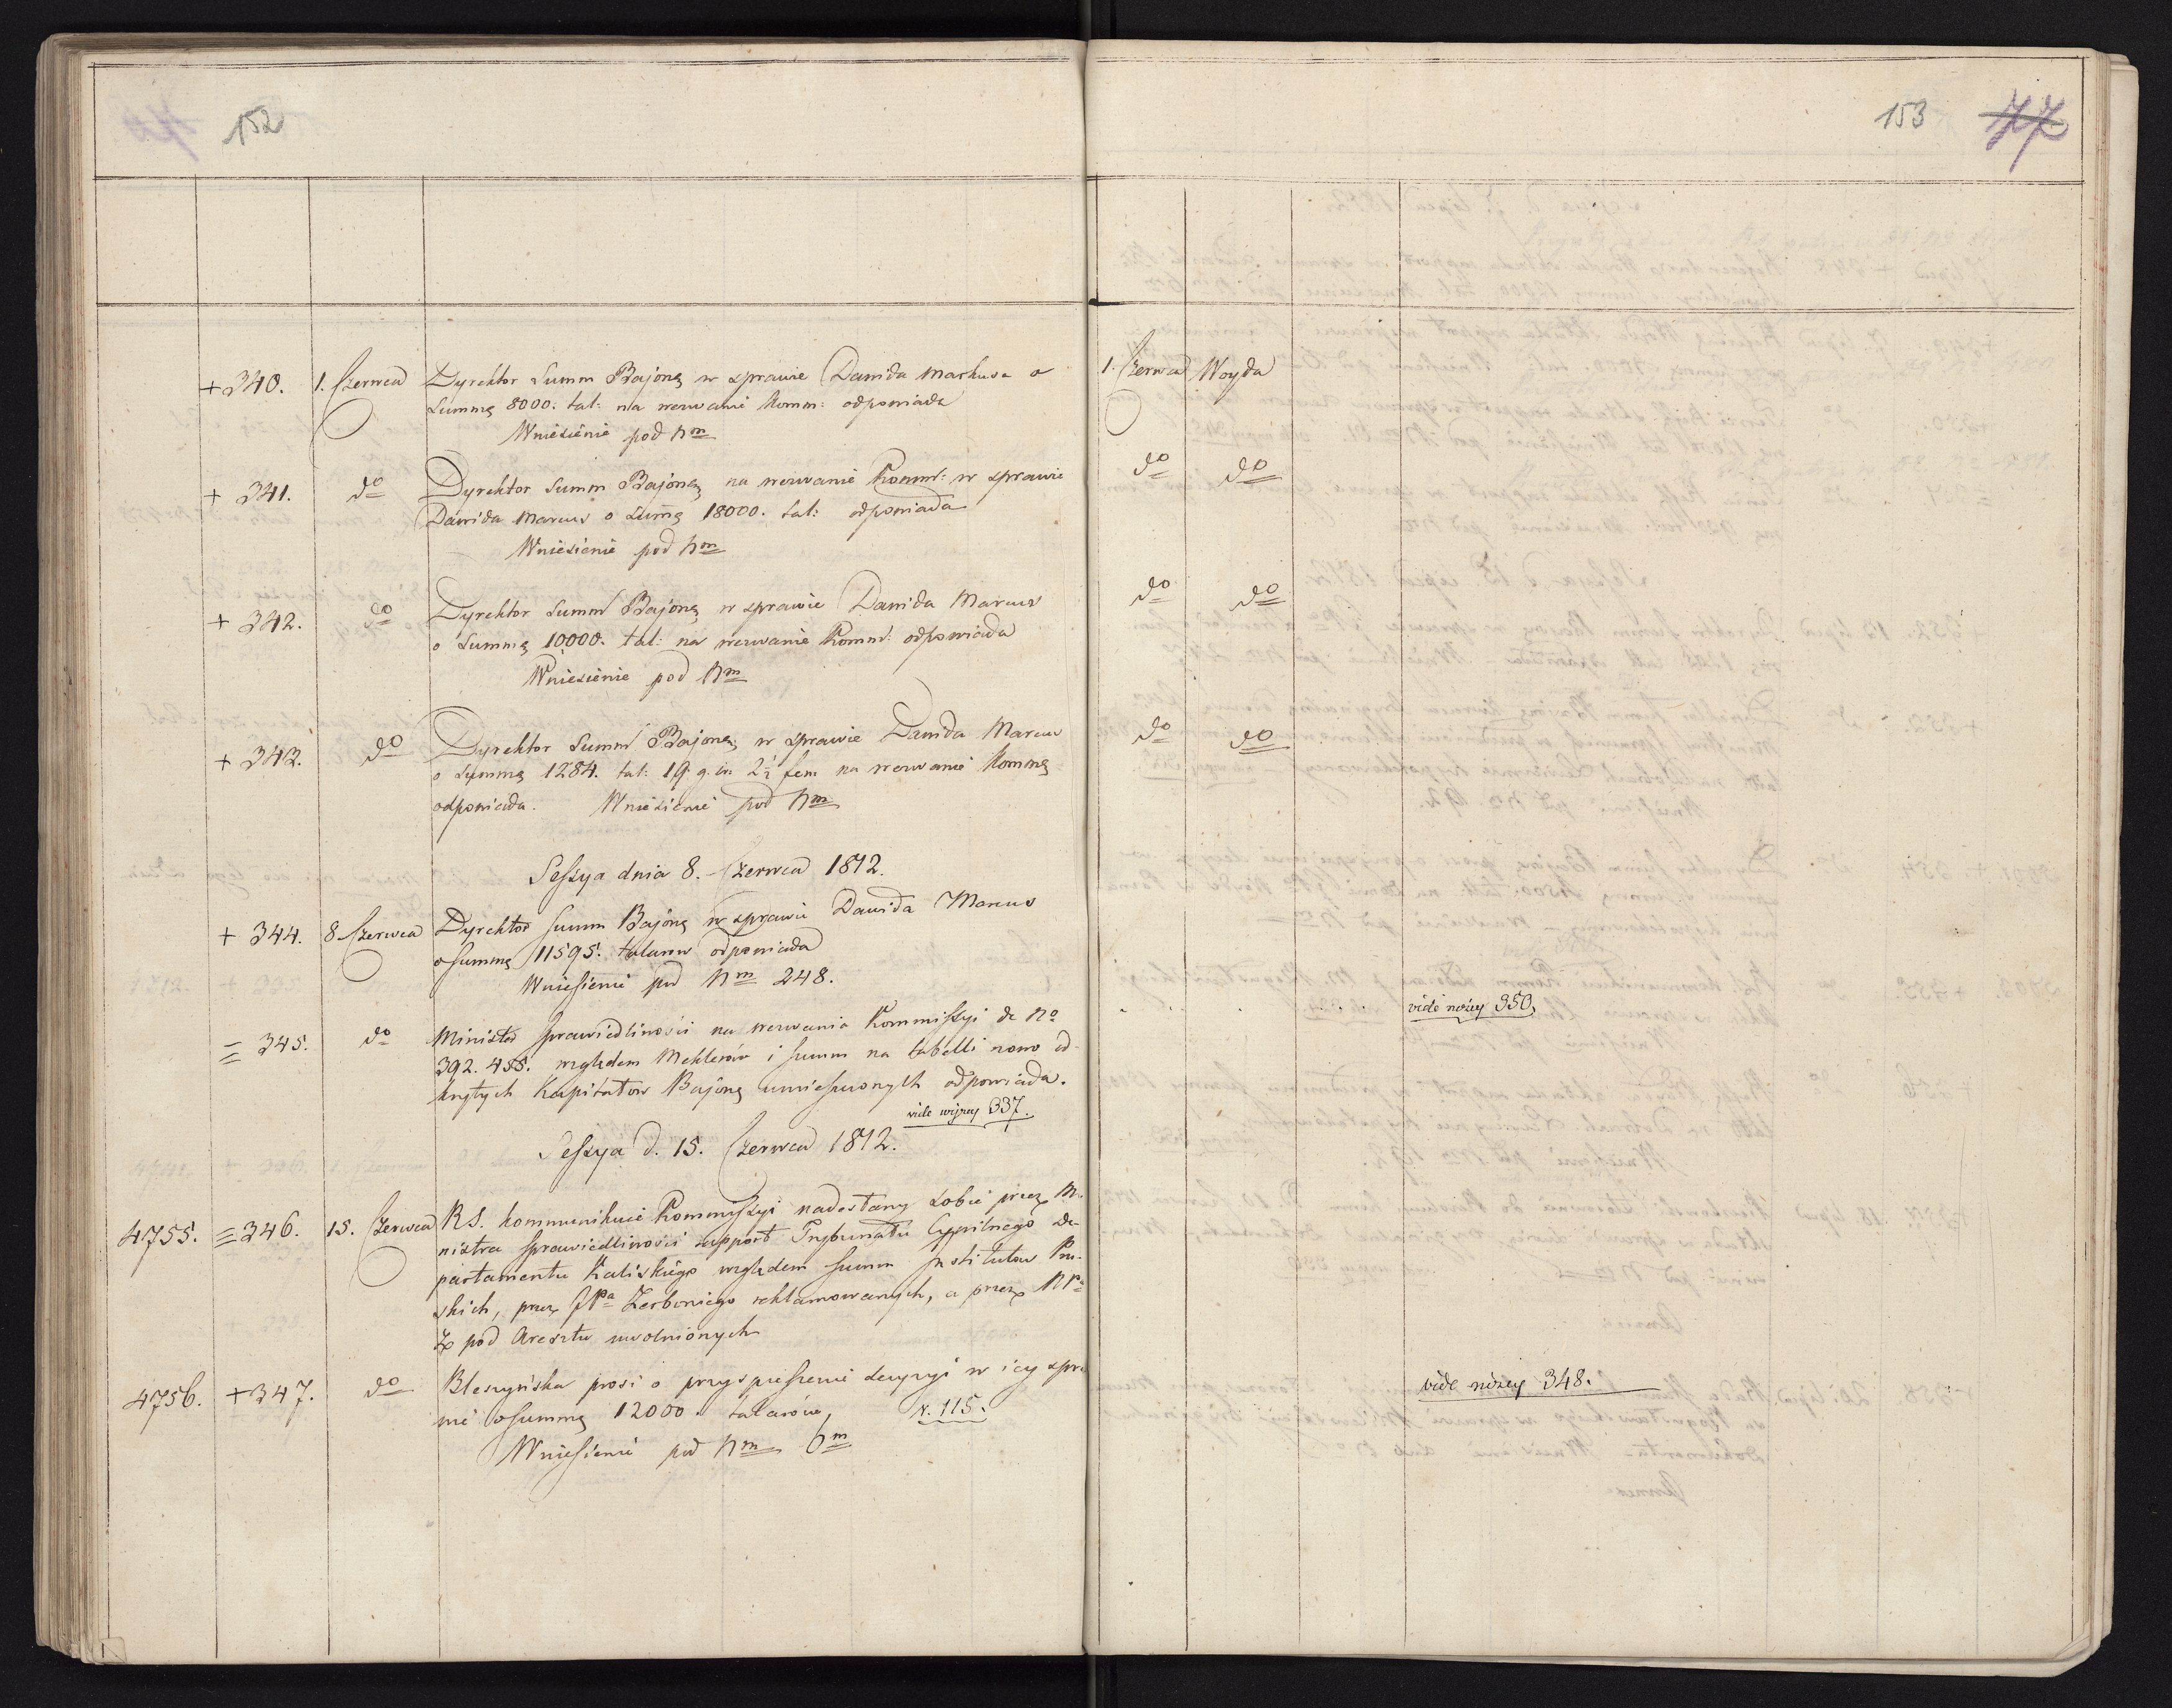 152
+ 340. 1. Czerwca Dyrektor Summ Bajonę w sprawie Dawida Markusa o
Summę 8000. tal: na wezwanie Komm: odpowiada
Wniesienie pod Nm
+ 341. do Dyrektor Summ Bajonę na wezwanie Komm: w sprawie
Dawida Marcus o Summę 18000. tal: odpowiada
Wniesienie pod Nm
+ 342. do Dyrektor Summ Bajonę w sprawie Dawida Marcus
o Summę 10000. tal: na wezwanie Komm: odpowiada
Wniesienie pod Nm
+ 343. do Dyrektor Summ Bajonę w sprawie Dawida Marcus
o Summę 1284. tal: 19. g. 2½ fen na wezwanie Kommę
odpowiada. Wniesienie pod Nm
Sessya dnia 8. Czerwca 1812.
+ 344. 8 Czerwca Dyrektor Summ Bajonę w sprawie Dawida Marcus
o summę 11595. talarow odpowiada
Wniesienie pod Nm 248.
= 345. do Minister Sprawiedliwości na wezwania Kommissyi de No
392. 455. względem Meklerów i summ na tabelli nowo od-
krytych Kapitałow Bajonę umieszczonych odpowiada.
vide wyzey 337.
Sessya d. 15. Czerwca 1812.
4755. = 346. 15. Czerwca RS. kommunikuie Kommissyi nadesłany sobie przez Mi-
nistra Sprawiedliwości rapport Trybunału Cywilnego De-
partamentu Kaliskiego względem summ Institutow Pru-
skich, przez JPa Zerboniego reklamowanych, a przez
z pod Aresztu uwolnionych
4756. + 347. do Bleszyńska prosi o przyspieszenie decyzyi w iey spra-
wie o summę 12000 talarów, N. 115.
Wniesienie pod Nm 6m
153 77
1. Czerwca Woyda
do do
do do
do do
vide niżey 350,
vide niżey 348.